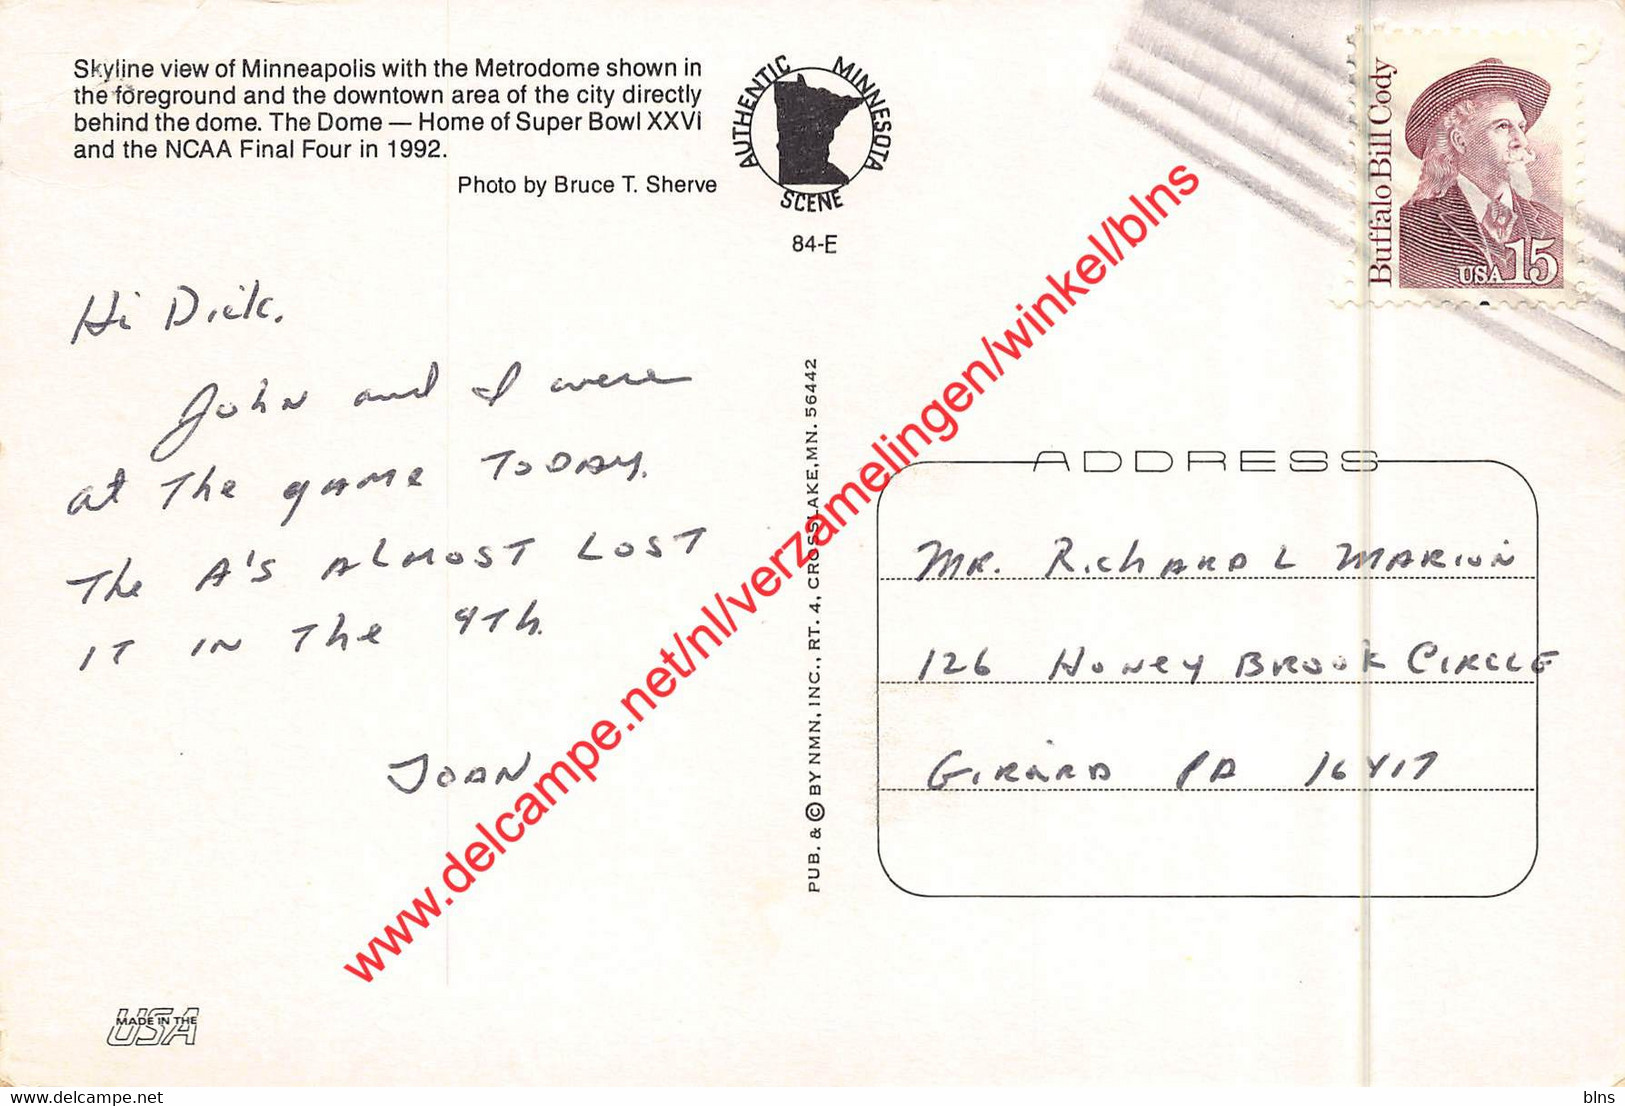 Skyline view of Minneapolis with the Metrodome shown in
the foreground and the downtown area of the city directly
behind the dome. The Dome — Home of Super Bowl XXVi
and the NCAA Final Four in 1992.
Photo by Bruce T. Sherve
AUTHENTIC MINNESOTA
SCENE
84-E
Buffalo Bill Cody
USA 15
Hi Dick.
John and I were
at The game TODAY.
The A's ALMOST LOST
IT IN The 9Th.
JOAN
PUB. & © BY NMN, INC., RT. 4, CROSSLAKE, MN. 56442
ADDRESS
MR. RichARD L MARION
126 HONEY BROOK CIRCLE
GIRARD PA 16417
MADE IN THE
USA
www.delcampe.net/nl/verzamelingen/winkel/blns
delcampe.net
blns